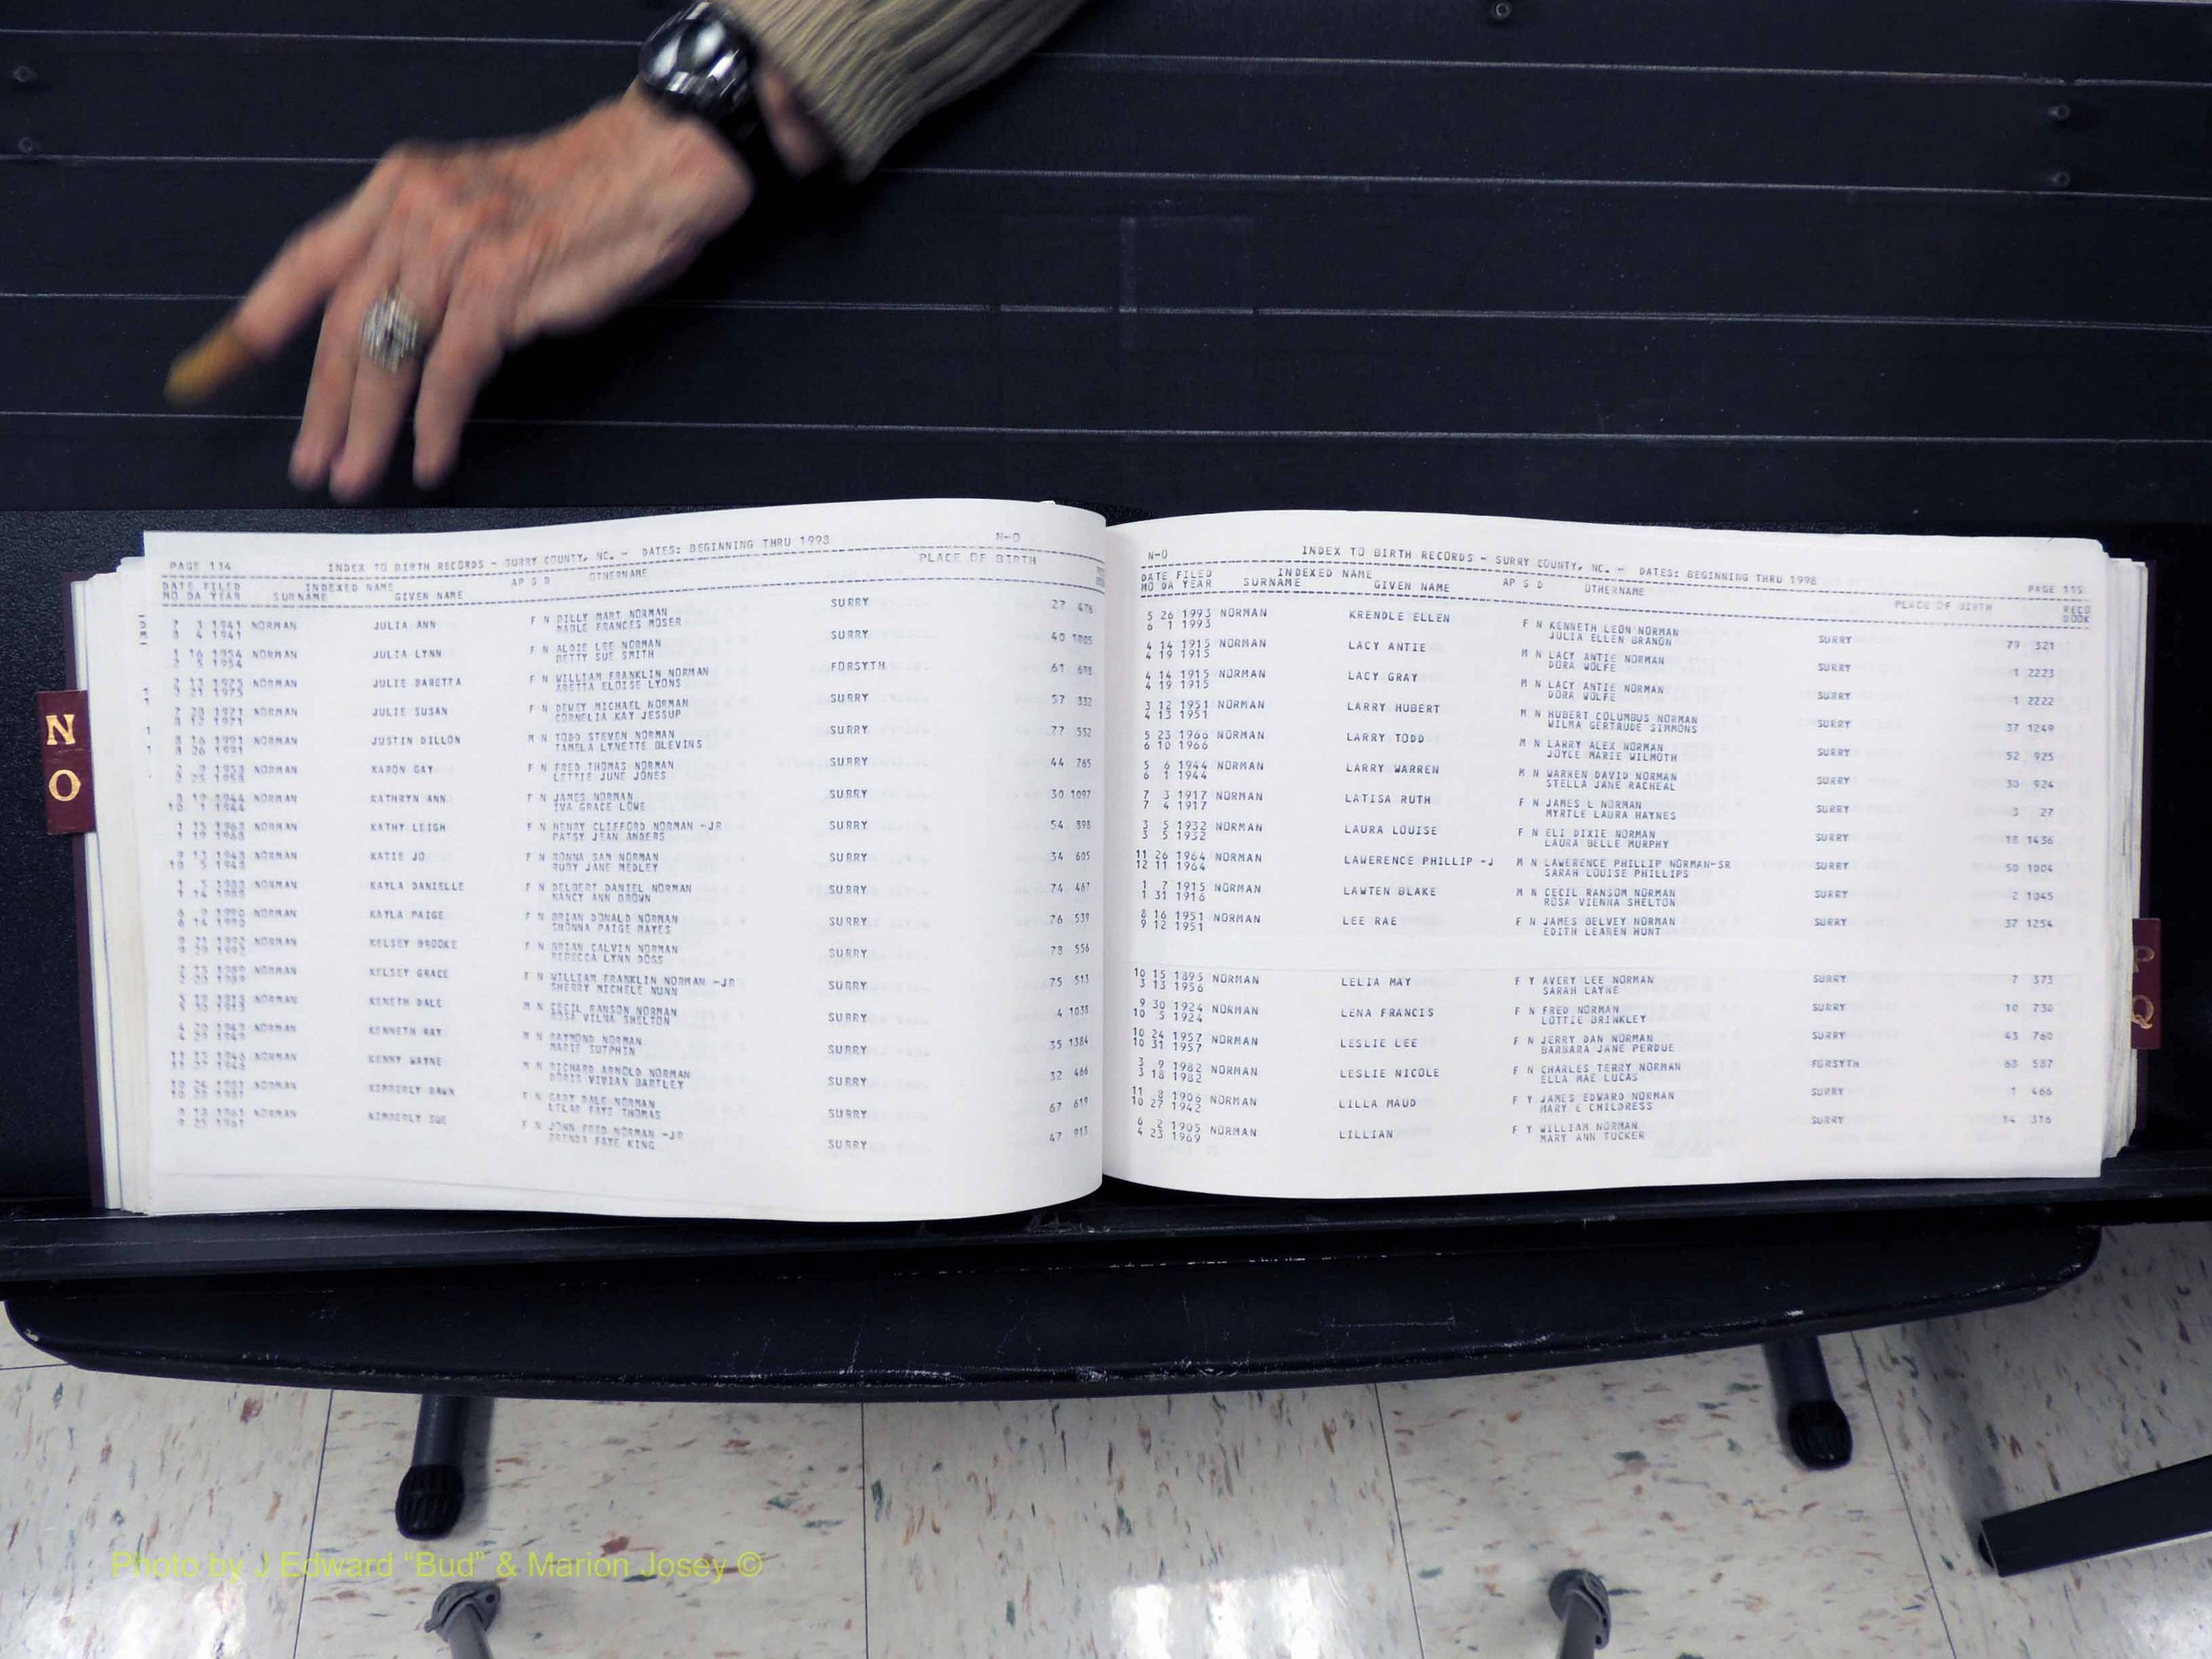 PAGE 114 INDEX TO BIRTH RECORDS - SURRY COUNTY, NC. - DATES: BEGINNING THRU 1998 N-O
DATE FILED INDEXED NAME AP S D OTHERNAME PLACE OF BIRTH
MO DA YEAR SURNAME GIVEN NAME
NORMAN JULIA ANN F N BILLY MART NORMAN SURRY 27 478
MABLE FRANCES MOSER
NORMAN JULIA LYNN F N ALDIE LEE NORMAN SURRY 40 1805
BETTY SUE SMITH
NORMAN JULIE BARETTA F N WILLIAM FRANKLIN NORMAN FORSYTH 61 698
ARETTA ELOISE LYONS
NORMAN JULIE SUSAN F N DEWEY MICHAEL NORMAN SURRY 57 332
CORNELIA KAY JESSUP
NORMAN JUSTIN DILLON M N TODD STEVEN NORMAN SURRY 77 552
TAMELA LYNETTE BLEVINS
NORMAN KARON GAY F N FRED THOMAS NORMAN SURRY 44 765
LETTIE JUNE JONES
NORMAN KATHRYN ANN F N JAMES NORMAN SURRY 30 1097
IVA GRACE LOWE
NORMAN KATHY LEIGH F N HENRY CLIFFORD NORMAN -JR SURRY 54 898
PATSY JEAN ANDERS
NORMAN KATIE JO F N DONNA SAM NORMAN SURRY 34 605
RUBY JANE MEDLEY
NORMAN KAYLA DANIELLE F N DELBERT DANIEL NORMAN SURRY 74 467
NANCY ANN BROWN
NORMAN KAYLA PAIGE F N BRIAN DONALD NORMAN SURRY 76 539
SHONNA PAIGE MAYES
NORMAN KELSEY BROOKE F N BRIAN CALVIN NORMAN SURRY 78 556
REBECCA LYNN DOSS
NORMAN KELSEY GRACE F N WILLIAM FRANKLIN NORMAN -JR SURRY 75 513
SHERRY MICHELE NUNN
NORMAN KENETH DALE M N CECIL RANSON NORMAN SURRY 4 1038
VILNA SHELTON
NORMAN KENNETH RAY M N RAYMOND NORMAN SURRY 35 1384
MARIE SUTPHIN
NORMAN KENNY WAYNE M N RICHARD ARNOLD NORMAN SURRY 32 466
DORIS VIVIAN BARTLEY
NORMAN KIMBERLY DAWN F N GARY DALE NORMAN SURRY 67 619
LELAR FAYE THOMAS
NORMAN KIMBERLY SUE F N JOHN FRED NORMAN -JR SURRY 47 913
BRENDA FAYE KING
N-O INDEX TO BIRTH RECORDS - SURRY COUNTY, NC. - DATES: BEGINNING THRU 1998 PAGE 115
DATE FILED INDEXED NAME AP S D OTHERNAME PLACE OF BIRTH RECO
MO DA YEAR SURNAME GIVEN NAME BOOK
5 26 1993 NORMAN KRENDLE ELLEN F N KENNETH LEON NORMAN SURRY 79 321
6 1 1993 JULIA ELLEN BRANON
4 14 1915 NORMAN LACY ANTIE M N LACY ANTIE NORMAN SURRY 1 2223
4 19 1915 DORA WOLFE
4 14 1915 NORMAN LACY GRAY M N LACY ANTIE NORMAN SURRY 1 2222
4 19 1915 DORA WOLFE
3 12 1951 NORMAN LARRY HUBERT M N HUBERT COLUMBUS NORMAN SURRY 37 1249
4 13 1951 WILMA GERTRUDE SIMMONS
5 23 1966 NORMAN LARRY TODD M N LARRY ALEX NORMAN SURRY 52 925
6 10 1966 JOYCE MARIE WILMOTH
5 6 1944 NORMAN LARRY WARREN M N WARREN DAVID NORMAN SURRY 30 924
6 1 1944 STELLA JANE RACHEAL
7 3 1917 NORMAN LATISA RUTH F N JAMES L NORMAN SURRY 3 27
7 4 1917 MYRTLE LAURA HAYNES
3 5 1932 NORMAN LAURA LOUISE F N ELI DIXIE NORMAN SURRY 18 1436
3 5 1932 LAURA BELLE MURPHY
11 26 1964 NORMAN LAWERENCE PHILLIP -J M N LAWERENCE PHILLIP NORMAN-SR SURRY 50 1004
12 11 1964 SARAH LOUISE PHILLIPS
1 7 1915 NORMAN LAWTEN BLAKE M N CECIL RANSOM NORMAN SURRY 2 1045
1 31 1916 ROSA VIENNA SHELTON
8 16 1951 NORMAN LEE RAE F N JAMES BELVEY NORMAN SURRY 37 1254
9 12 1951 EDITH LEAREN HUNT
10 15 1895 NORMAN LELIA MAY F Y AVERY LEE NORMAN SURRY 7 373
3 13 1956 SARAH LAYNE
9 30 1924 NORMAN LENA FRANCIS F N FRED NORMAN SURRY 10 730
10 5 1924 LOTTIE BRINKLEY
10 24 1957 NORMAN LESLIE LEE F N JERRY DAN NORMAN SURRY 43 760
10 31 1957 BARBARA JANE PERDUE
3 9 1982 NORMAN LESLIE NICOLE F N CHARLES TERRY NORMAN FORSYTH 68 587
3 18 1982 ELLA MAE LUCAS
11 8 1906 NORMAN LILLA MAUD F Y JAMES EDWARD NORMAN SURRY 1 466
10 27 1942 MARY E CHILDRESS
6 2 1905 NORMAN LILLIAN F Y WILLIAM NORMAN SURRY 14 316
4 23 1969 MARY ANN TUCKER
N
O
P
Q
Photo by J Edward “Bud” & Marion Josey ©